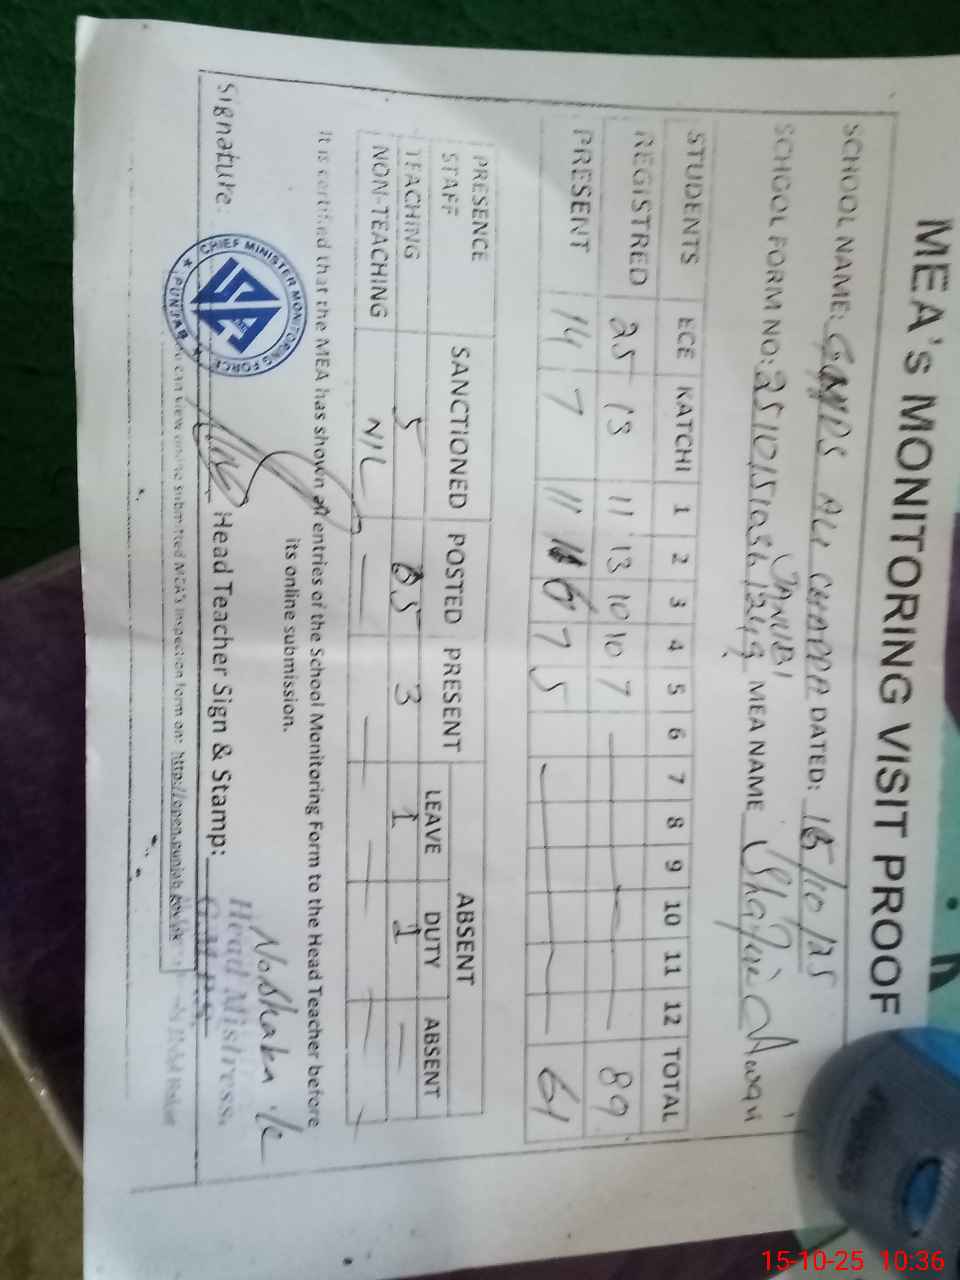 MEA's MONITORING VISIT PROOF
SCHOOL NAME: GMPS ALI CHAPPA DATED: 15/10/25
JANUBI
SCHOOL FORM NO: MEA NAME
STUDENTS ECE KATCHI 1 2 3 4 5 6 7 8 9 10 11 12 TOTAL
REGISTRED 25 13 11 13 10 10 7 — 89
PRESENT 14 7 11 11 6 7 5 — 61
PRESENCE SANCTIONED POSTED PRESENT ABSENT
STAFF LEAVE DUTY ABSENT
TEACHING 5 5 3 1 1 —
NON-TEACHING NIL — — — — —
It is certified that the MEA has shown all entries of the School Monitoring Form to the Head Teacher before
its online submission.
Signature: Head Teacher Sign & Stamp:
CHIEF MINISTER MONITORING FORCE
PUNJAB
Head Mistress
can view online submitted MEA's inspection form on: http://open.punjab.gov.pk
15-10-25 10:36